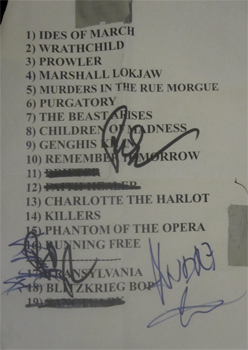 1) IDES OF MARCH
2) WRATHCHILD
3) PROWLER
4) MARSHALL LOKJAW
5) MURDERS IN THE RUE MORGUE
6) PURGATORY
7) THE BEAST ARISES
8) CHILDREN OF MADNESS
9) GENGHIS
10) REMEMBER TOMORROW
11)
12) FAITH HEALER
13) CHARLOTTE THE HARLOT
14) KILLERS
15) PHANTOM OF THE OPERA
16) RUNNING FREE
17) TRANSYLVANIA
18) BLITZKRIEG BOP
19)